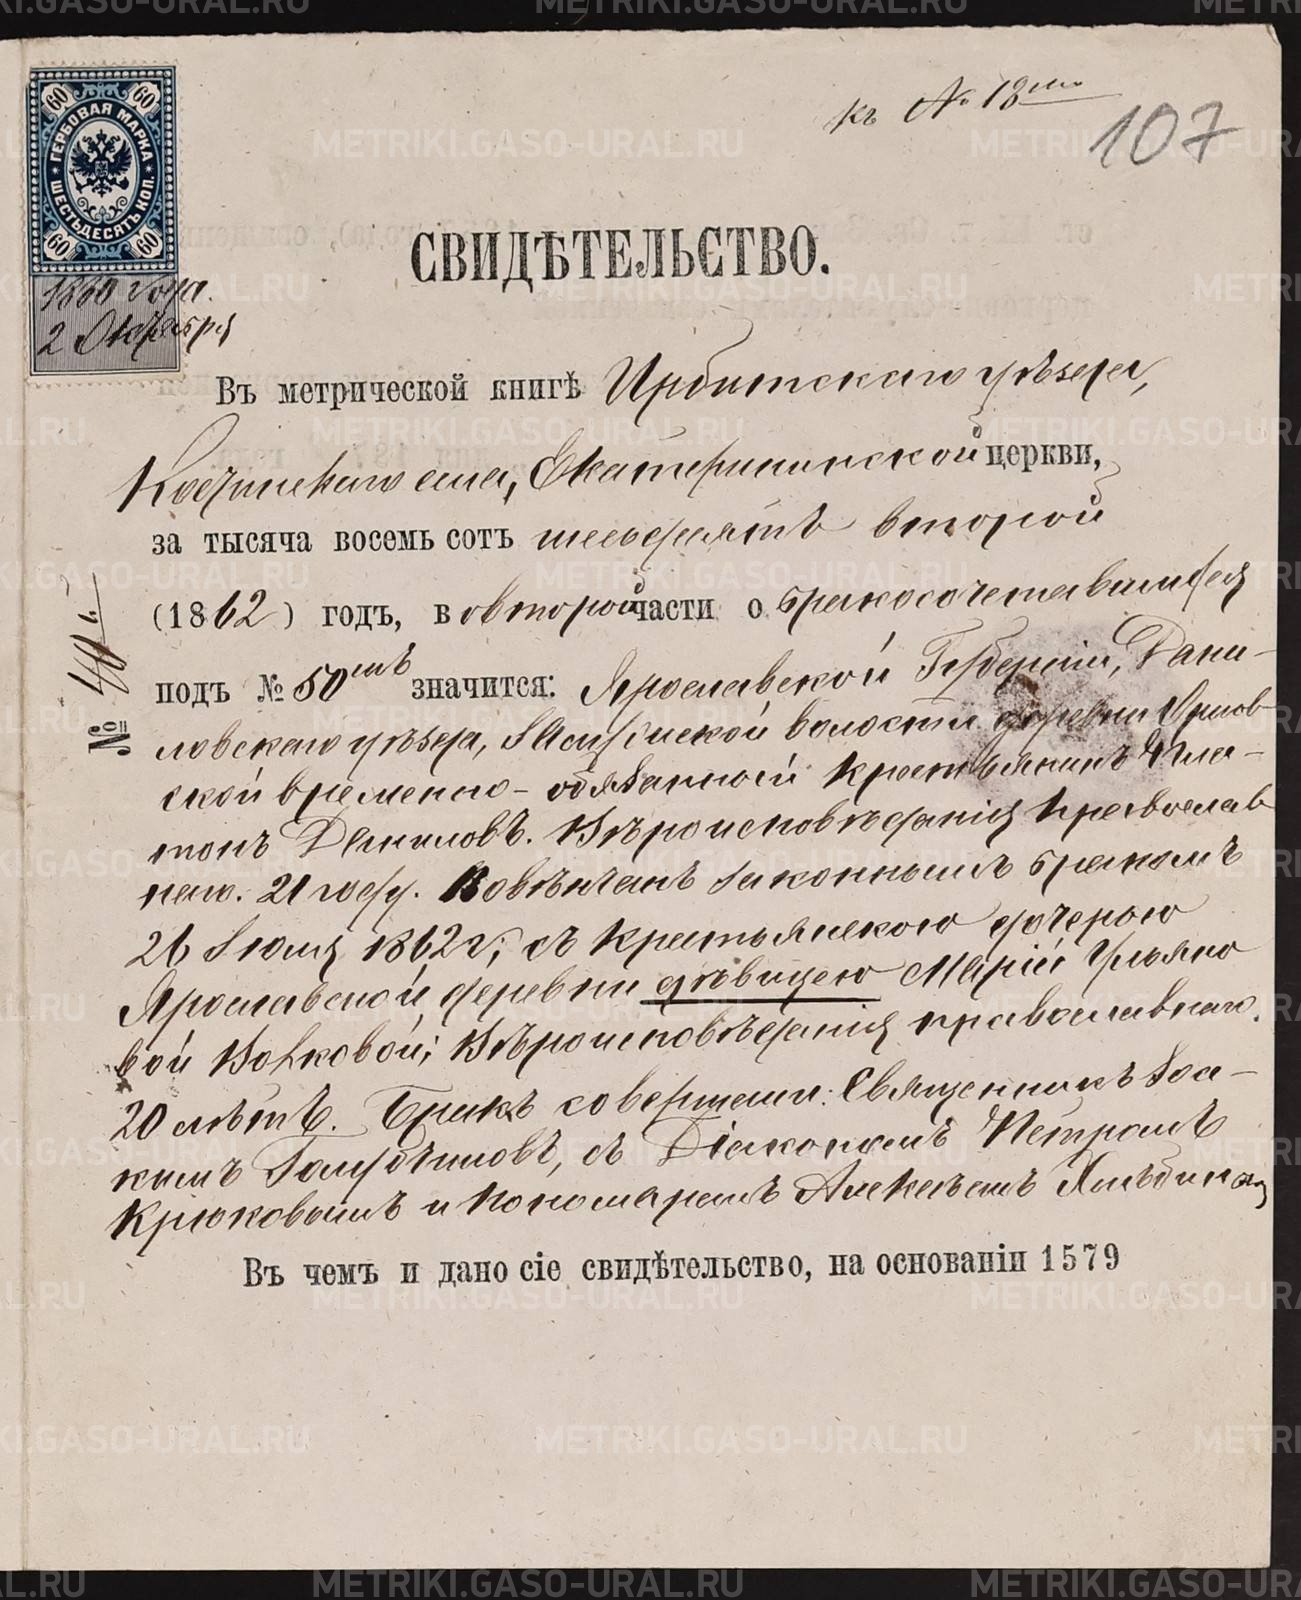 къ № 18му
107
60 60
ГЕРБОВАЯ МАРКА
ШЕСТЬДЕСЯТЪ КОП.
60 60
2 Октября
СВИДѢТЕЛЬСТВО.
Въ метрической книгѣ Ирбитскаго уѣзда,
села, Екатерининской церкви,
за тысяча восемь сотъ шесьдятъ второй
(1862) годъ, в о второй части о бракосочетавшихся
№ 40й
подъ № 50мъ значится: Ярославской Губерніи, Дани-
ловскаго уѣзда, волости деревни
ской временно-обязанной крестьянинъ Пла-
тонъ Даниловъ. Вѣроисповѣданія православ
наго. 21 году. Повѣнчанъ законнымъ бракомъ
26 Іюля 1862 г; съ крестьянскою дочерью
Ярославской, деревни дѣвицею Маріей Ульяно
вой Волковой; Вѣроисповѣданія православнаго.
20 лѣтъ. Бракъ совершали: Священникъ Іоа-
кимъ , съ Діакономъ Петромъ
Крюковымъ и пономаремъ Алексѣемъ
Въ чемъ и дано сіе свидѣтельство, на основаніи 1579
METRIKI.GASO-URAL.RU